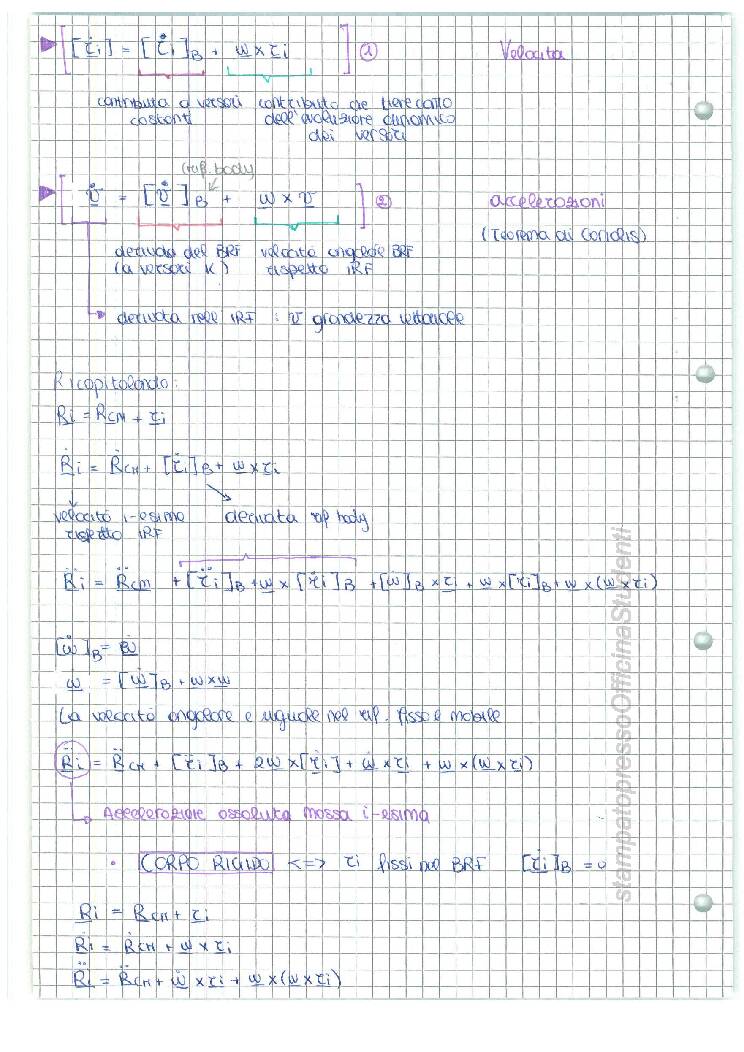 [ṙi] = [ṙi]B + ω × ri ] ① Velocità
contributo a versori costanti
contributo che tiene conto dell'evoluzione dinamica dei versori
(rif. body)
v̇ = [v̇]B + ω × v ] ② accelerazioni
(Teorema di Coriolis)
derivata del BRF (a versori K)
velocità angolare BRF rispetto IRF
derivata nell' IRF : v grandezza vettoriale
Ricapitolando:
Ri = RCM + ri
Ṙi = ṘCM + [ṙi]B + ω × ri
velocità i-esima rispetto IRF
derivata rif body
R̈i = R̈CM + [r̈i]B + ω × [ṙi]B + [ω̇]B × ri + ω × [ṙi]B + ω × (ω × ri)
[ω̇]B = ω̇
ω̇ = [ω̇]B + ω × ω
La velocità angolare è uguale nel rif. fisso e mobile
R̈i = R̈CM + [r̈i]B + 2ω × [ṙi] + ω̇ × ri + ω × (ω × ri)
Accelerazione assoluta massa i-esima
• CORPO RIGIDO <=> ri fissi nel BRF [ṙi]B = 0
Ri = RCM + ri
Ṙi = ṘCM + ω × ri
R̈i = R̈CM + ω̇ × ri + ω × (ω × ri)
stampatopressoOfficinaStudenti